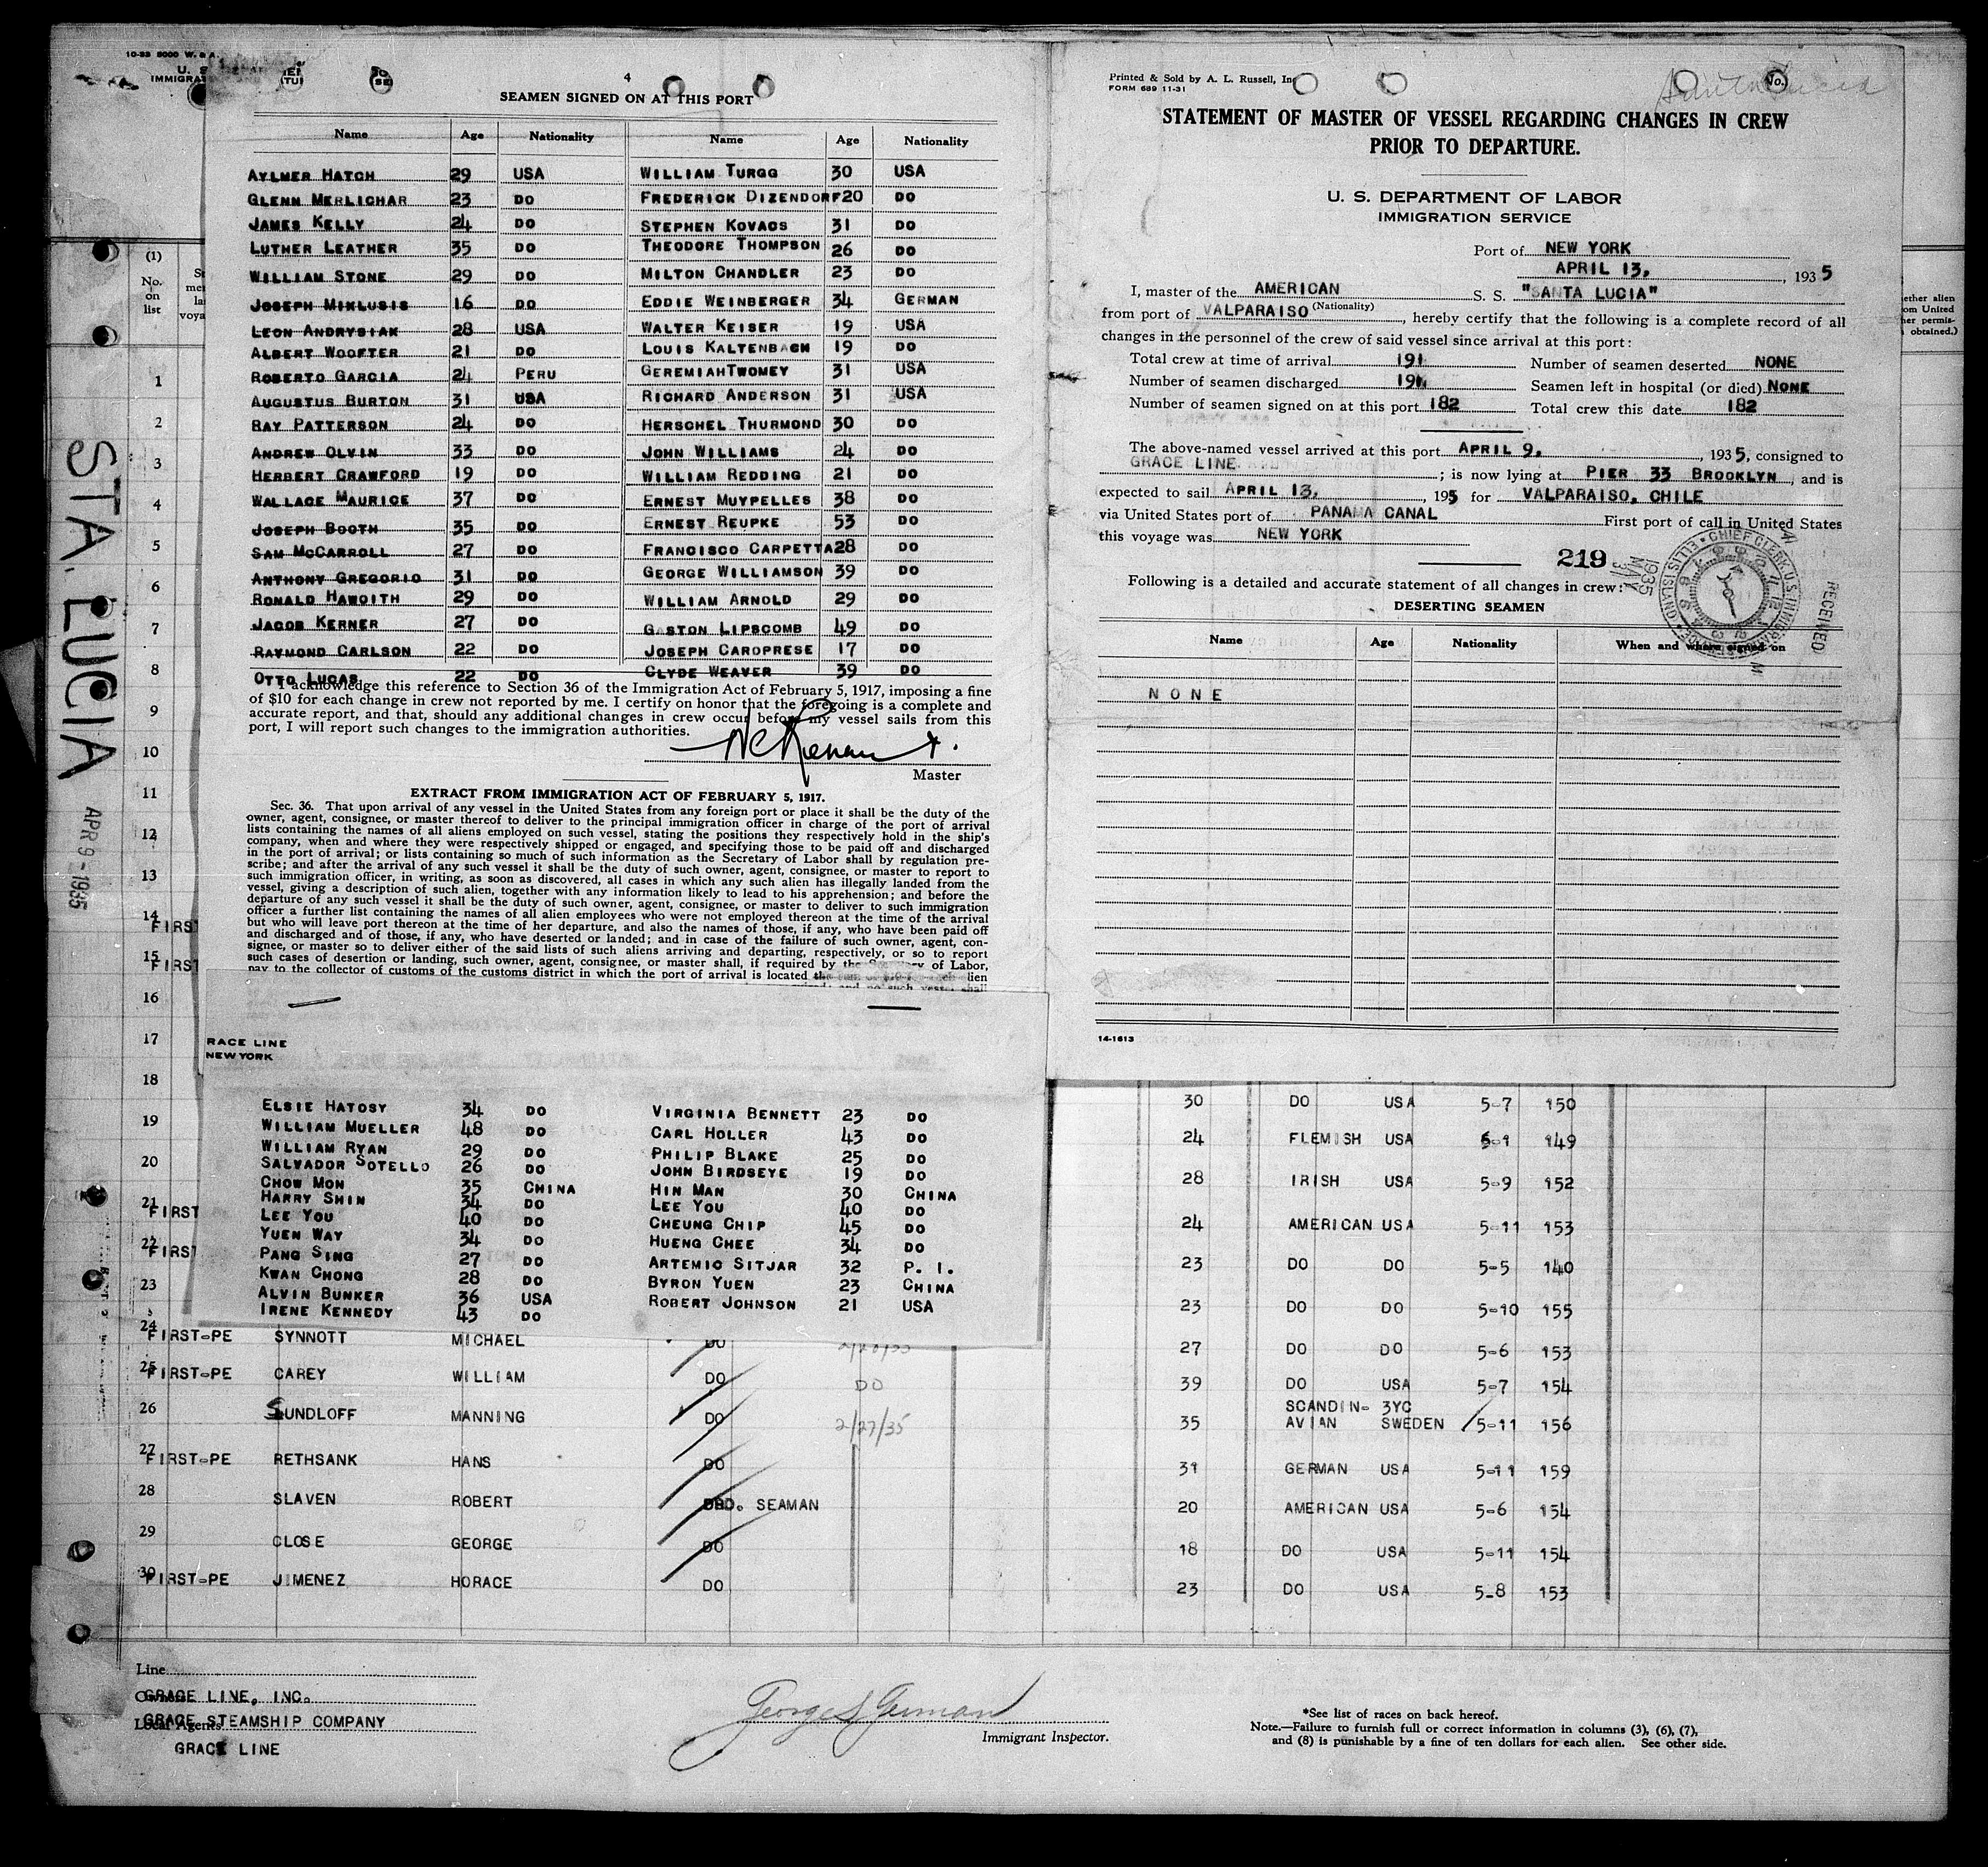 10-33 5000 W. & A.
U. S.
IMMIGRA
4
SEAMEN SIGNED ON AT THIS PORT
Name Age Nationality Name Age Nationality
AYLMER HATCH 29 USA WILLIAM TURGG 30 USA
GLENN MERLICHAR 23 DO FREDERICK DIZENDORF 20 DO
JAMES KELLY 24 DO STEPHEN KOVACS 31 DO
LUTHER LEATHER 35 DO THEODORE THOMPSON 26 DO
WILLIAM STONE 29 DO MILTON CHANDLER 23 DO
JOSEPH MIKLUSIS 16 DO EDDIE WEINBERGER 34 GERMAN
LEON ANDRYSIAK 28 USA WALTER KEISER 19 USA
ALBERT WOOFTER 21 DO LOUIS KALTENBACH 19 DO
ROBERTO GARCIA 24 PERU GEREMIAH TWOMEY 31 USA
AUGUSTUS BURTON 31 USA RICHARD ANDERSON 31 USA
RAY PATTERSON 24 DO HERSCHEL THURMOND 30 DO
ANDREW OLVIN 33 DO JOHN WILLIAMS 24 DO
HERBERT CRAWFORD 19 DO WILLIAM REDDING 21 DO
WALLACE MAURICE 37 DO ERNEST MUYPELLES 38 DO
JOSEPH BOOTH 35 DO ERNEST REUPKE 53 DO
SAM MCCARROLL 27 DO FRANCISCO CARPETTA 28 DO
ANTHONY GREGORIO 31 DO GEORGE WILLIAMSON 39 DO
RONALD HAWOITH 29 DO WILLIAM ARNOLD 29 DO
JACOB KERNER 27 DO GASTON LIPSCOMB 49 DO
RAYMOND CARLSON 22 DO JOSEPH CAROPRESE 17 DO
OTTO LUCAS 22 DO CLYDE WEAVER 39 DO
I acknowledge this reference to Section 36 of the Immigration Act of February 5, 1917, imposing a fine
of $10 for each change in crew not reported by me. I certify on honor that the foregoing is a complete and
accurate report, and that, should any additional changes in crew occur before my vessel sails from this
port, I will report such changes to the immigration authorities.
Master
EXTRACT FROM IMMIGRATION ACT OF FEBRUARY 5, 1917.
Sec. 36. That upon arrival of any vessel in the United States from any foreign port or place it shall be the duty of the
owner, agent, consignee, or master thereof to deliver to the principal immigration officer in charge of the port of arrival
lists containing the names of all aliens employed on such vessel, stating the positions they respectively hold in the ship's
company, when and where they were respectively shipped or engaged, and specifying those to be paid off and discharged
in the port of arrival; or lists containing so much of such information as the Secretary of Labor shall by regulation pre-
scribe; and after the arrival of any such vessel it shall be the duty of such owner, agent, consignee, or master to report to
such immigration officer, in writing, as soon as discovered, all cases in which any such alien has illegally landed from the
vessel, giving a description of such alien, together with any information likely to lead to his apprehension; and before the
departure of any such vessel it shall be the duty of such owner, agent, consignee, or master to deliver to such immigration
officer a further list containing the names of all alien employees who were not employed thereon at the time of the arrival
but who will leave port thereon at the time of her departure, and also the names of those, if any, who have been paid off
and discharged and of those, if any, who have deserted or landed; and in case of the failure of such owner, agent, con-
signee, or master so to deliver either of the said lists of such aliens arriving and departing, respectively, or so to report
such cases of desertion or landing, such owner, agent, consignee, or master shall, if required by the Secretary of Labor,
pay to the collector of customs of the customs district in which the port of arrival is located
lien
RACE LINE
NEW YORK
ELSIE HATOSY 34 DO VIRGINIA BENNETT 23 DO
WILLIAM MUELLER 48 DO CARL HOLLER 43 DO
WILLIAM RYAN 29 DO PHILIP BLAKE 25 DO
SALVADOR SOTELLO 26 DO JOHN BIRDSEYE 19 DO
CHOW MON 35 CHINA HIN MAN 30 CHINA
HARRY SHIN 34 DO LEE YOU 40 DO
LEE YOU 40 DO CHEUNG CHIP 45 DO
YUEN WAY 34 DO HUENG CHEE 34 DO
PANG SING 27 DO ARTEMIO SITJAR 32 P. I.
KWAN CHONG 28 DO BYRON YUEN 23 CHINA
ALVIN BUNKER 36 USA ROBERT JOHNSON 21 USA
IRENE KENNEDY 43 DO
Printed & Sold by A. L. Russell, Inc
FORM 689 11-31
No.
Santa Lucia
STATEMENT OF MASTER OF VESSEL REGARDING CHANGES IN CREW
PRIOR TO DEPARTURE.
U. S. DEPARTMENT OF LABOR
IMMIGRATION SERVICE
Port of NEW YORK
APRIL 13, 1935
I, master of the AMERICAN S. S. "SANTA LUCIA"
(Nationality)
from port of VALPARAISO, hereby certify that the following is a complete record of all
changes in the personnel of the crew of said vessel since arrival at this port:
Total crew at time of arrival 191 Number of seamen deserted NONE
Number of seamen discharged 191 Seamen left in hospital (or died) NONE
Number of seamen signed on at this port 182 Total crew this date 182
The above-named vessel arrived at this port APRIL 9, 1935, consigned to
GRACE LINE; is now lying at PIER 33 BROOKLYN, and is
expected to sail APRIL 13, 195 for VALPARAISO, CHILE
via United States port of PANAMA CANAL First port of call in United States
this voyage was NEW YORK
219
1935
MAY
RECEIVED
CHIEF CLERK U.S. IMMIGRATION
ELLIS ISLAND
Following is a detailed and accurate statement of all changes in crew:
DESERTING SEAMEN
Name Age Nationality When and where signed on
NONE
14-1613
ether alien
om United
her permis-
obtained.)
STA. LUCIA
APR 9-1935
(1)
No.
on
list
1
2
3
4
5
6
7
8
9
10
11
12
13
14 FIRST
15 FIRST
16
17
18
19 30 DO USA 5-7 150
24 FLEMISH USA 5-1 149
20 28 IRISH USA 5-9 152
21 FIRST 24 AMERICAN USA 5-11 153
22 FIRST 23 DO DO 5-5 140
23 23 DO DO 5-10 155
24 FIRST-PE SYNNOTT MICHAEL DO 27 DO DO 5-6 153
25 FIRST-PE CAREY WILLIAM DO DO 39 DO USA 5-7 154
26 SUNDLOFF MANNING DO 2/27/35 35 SCANDIN-AVIAN 3YC SWEDEN 5-11 156
27 FIRST-PE RETHSANK HANS DO 31 GERMAN USA 5-11 159
28 SLAVEN ROBERT ORD. SEAMAN 20 AMERICAN USA 5-6 154
29 CLOSE GEORGE DO 18 DO USA 5-11 154
30 FIRST-PE JIMENEZ HORACE DO 23 DO USA 5-8 153
Line
Owners GRACE LINE, INC.
Local Agents GRACE STEAMSHIP COMPANY
GRACE LINE
Immigrant Inspector.
*See list of races on back hereof.
Note.—Failure to furnish full or correct information in columns (3), (6), (7),
and (8) is punishable by a fine of ten dollars for each alien. See other side.